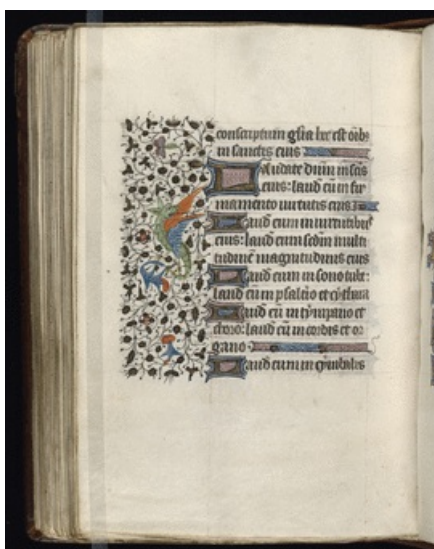 conscriptum gl̄ia hec est oīb;
in sanctis eius
Laudate dnm̄ in scīs
eius: laud eū in fir
mamento uirtutis eius
Laud eum in uirtutibꝰ
eius: laud eum scdm̄ multi
tudinē magnitudinis eius
Laud eum in sono tube:
laud eū m psalt̄io et cythara
Laud eū in tympano et
choro: laud eū in cordis et or
gano
Laud eum in cymbalis